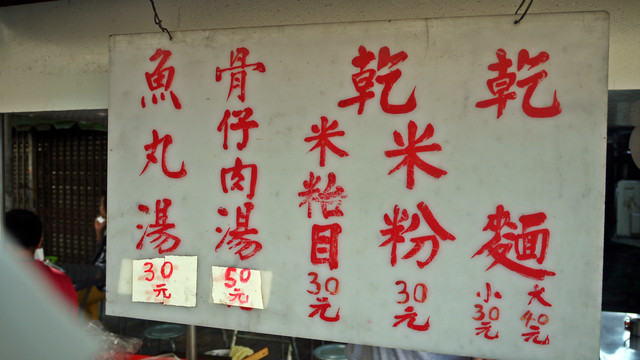 乾麵
大40元
小30元
乾米粉
30元
米粭目
30元
骨仔肉湯
50元
魚丸湯
30元